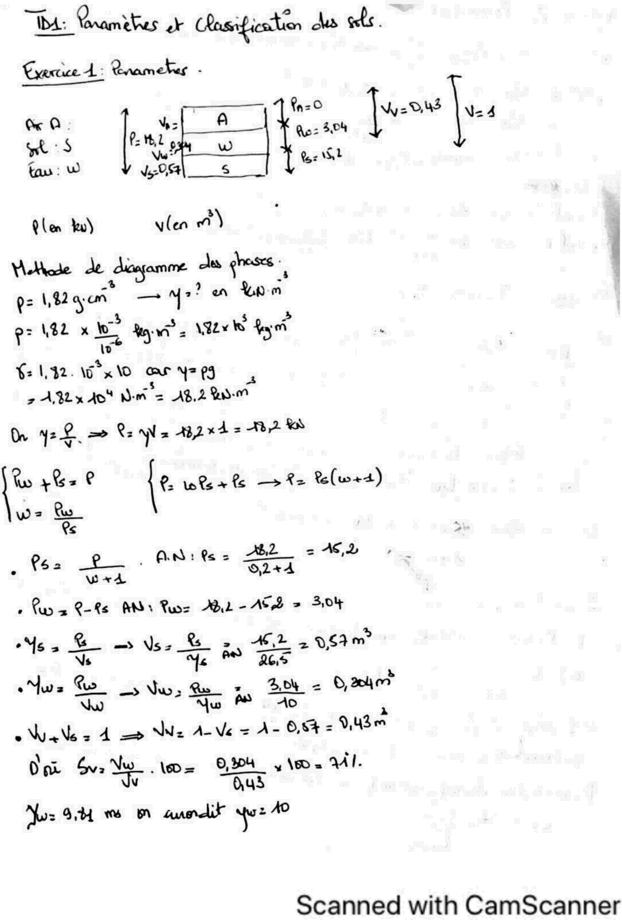 TD1: Paramètres et Classification des sols.
Exercice 1: Parametres.
Air A:
Sol: S
Eau: W
P=18,2
VA=
VW=0,304
VS=0,57
A
W
S
PA=0
PW=3,04
PS=15,2
VV=0,43
V=1
P(en kN) V(en m³)
Methode de diagramme des phases.
ρ=1,82 g.cm⁻³ → γ=? en kN.m⁻³
ρ=1,82 × 10⁻³/10⁻⁶ kg.m⁻³=1,82×10³ kg.m⁻³
γ=1,82.10⁻³×10 car γ=ρg
=1,82×10⁴ N.m⁻³=18,2 kN.m⁻³
On γ=P/V ⇒ P=γV=18,2×1=18,2 kN
{Pw+Ps=P {P=wPs+Ps → P=Ps(w+1)
w=Pw/Ps
• Ps=P/(w+1). A.N: Ps=18,2/(0,2+1)=15,2
• Pw=P-Ps AN: Pw=18,2-15,2=3,04
• γs=Ps/Vs → Vs=Ps/γs AN 15,2/26,5=0,57m³
• γw=Pw/Vw → Vw=Pw/γw AN 3,04/10=0,304m³
• Vv+Vs=1 ⇒ Vv=1-Vs=1-0,57=0,43m³
D'où Sv=Vw/Vv.100=0,304/0,43×100=71%.
γw=9,81 ms on arrondit γw=10
Scanned with CamScanner